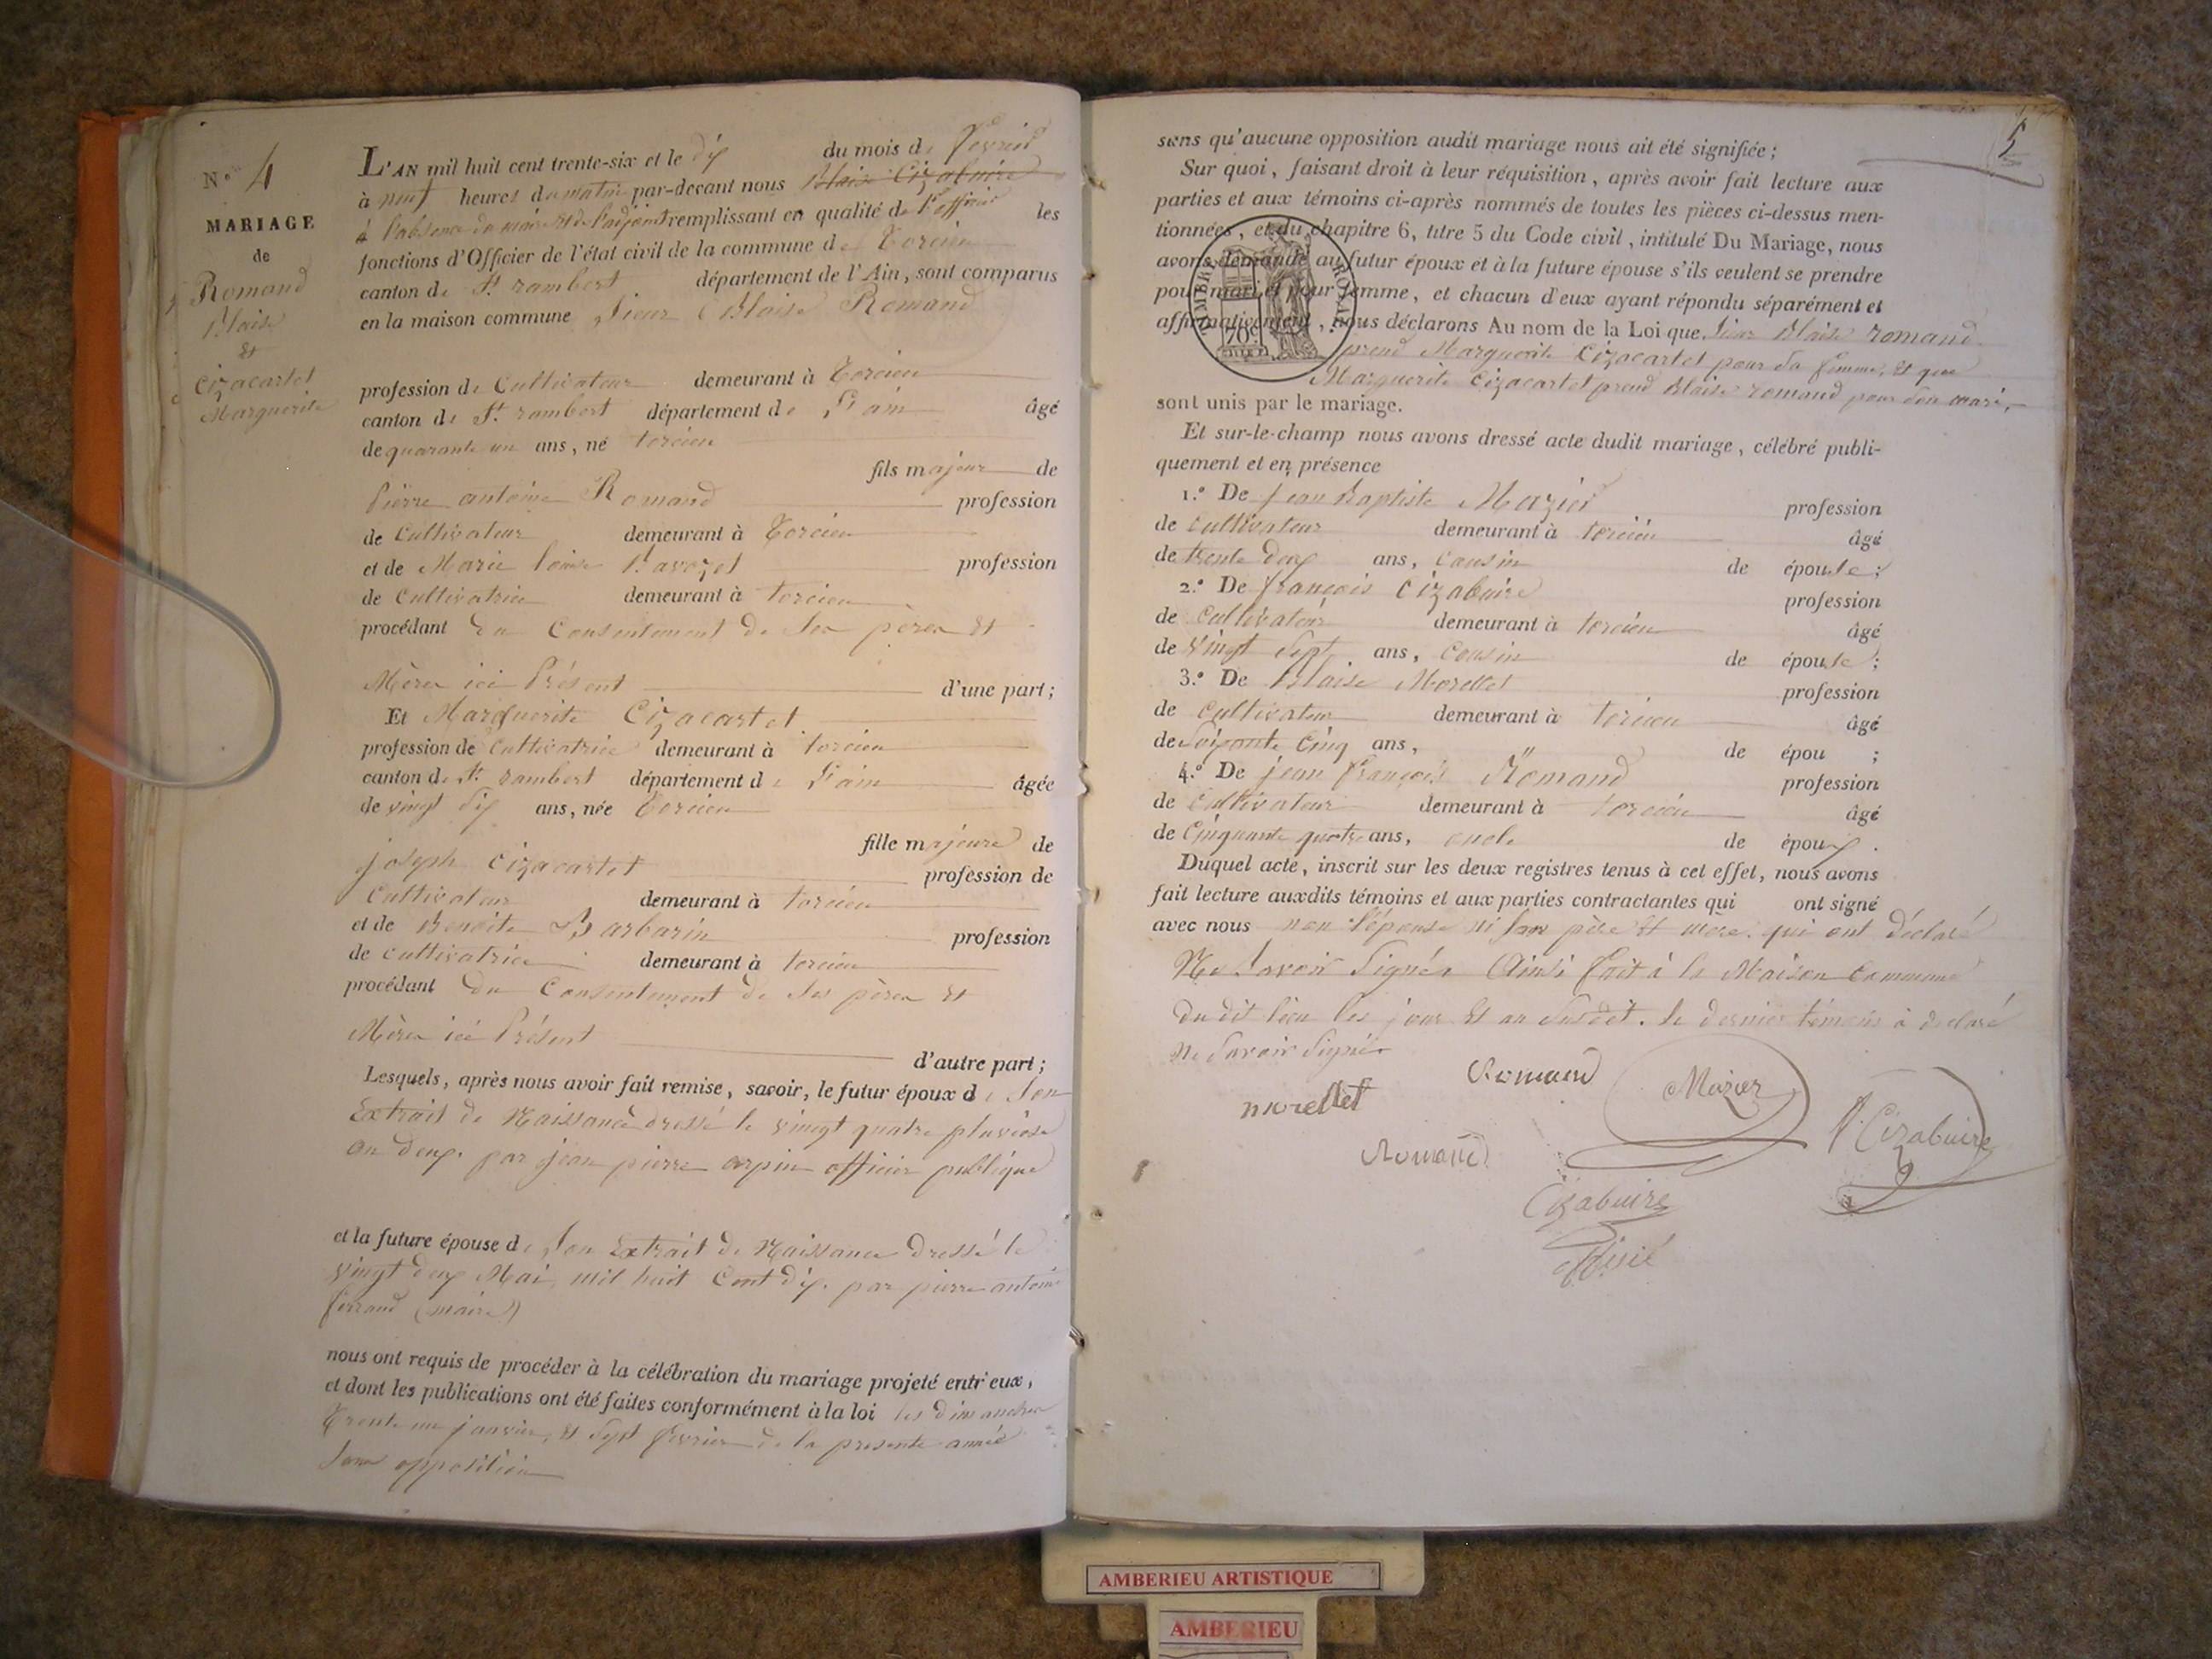 N.º 4
MARIAGE
de
Romand
Blaise
et
Cizacartet
Marguerite
L'AN mil huit cent trente-six et le dix du mois de fevrier
à neuf heures du matin par-devant nous Blaise Cizabuire
à l'absence du maire et de l'adjoint remplissant en qualité de les
fonctions d'Officier de l'état civil de la commune de Torcieu
canton de St rambert département de l'Ain, sont comparus
en la maison commune Sieur Blaise Romand
profession de Cultivateur demeurant à Torcieu
canton de St rambert département de l'ain âgé
de quarante un ans, né torcieu
fils majeur de
Pierre antoine Romand profession
de Cultivateur demeurant à Torcieu
et de Marie louise profession
de Cultivatrice demeurant à torcieu
procédant du Consentement de ses pères et
Mères ici Présent d'une part;
Et Marguerite Cizacartet
profession de Cultivatrice demeurant à torcieu
canton de St rambert département de l'ain âgée
de vingt six ans, née Torcieu
fille majeure de
joseph Cizacartet profession de
Cultivateur demeurant à torcieu
et de Benoite Barbarin profession
de cultivatrice demeurant à torcieu
procédant du Consentement de ses pères et
Mères ici Présent d'autre part;
Lesquels, après nous avoir fait remise, savoir, le futur époux de Son
Extrait de Naissance dressé le vingt quatre pluviose
an deux. par jean pierre arpin officier publique
et la future épouse de Son Extrait de Naissance dressé le
vingt deux Mai, mil huit Cent dix. par pierre antoine
ferrand (maire)
nous ont requis de procéder à la célébration du mariage projeté entr'eux,
et dont les publications ont été faites conformément à la loi les dimanches
Trente un janvier, et sept fevrier de la presente année
sans opposition
5
sans qu'aucune opposition audit mariage nous ait été signifiée;
Sur quoi, faisant droit à leur réquisition, après avoir fait lecture aux
parties et aux témoins ci-après nommés de toutes les pièces ci-dessus men-
tionnées, et du chapitre 6, titre 5 du Code civil, intitulé Du Mariage, nous
avons demandé au futur époux et à la future épouse s'ils veulent se prendre
pour mari et pour femme, et chacun d'eux ayant répondu séparément et
affirmativement, nous déclarons Au nom de la Loi que Sieur Blaise romand
prend Marguerite Cizacartet pour sa femme, et que
Marguerite Cizacartet prend Blaise romand pour son mari,
sont unis par le mariage.
Et sur-le-champ nous avons dressé acte dudit mariage, célébré publi-
quement et en présence
1.º De Jean Baptiste Mazier profession
de Cultivateur demeurant à torcieu âgé
de trente deux ans, cousin de épouse;
2.º De françois Cizabuire profession
de Cultivateur demeurant à torcieu âgé
de vingt Sept ans, Cousin de épouse;
3.º De Blaise Morellet profession
de Cultivateur demeurant à torcieu âgé
de Soixante Cinq ans, " de épou ;
4.º De jean françois Romand profession
de Cultivateur demeurant à torcieu âgé
de Cinquante quatre ans, oncle de époux.
Duquel acte, inscrit sur les deux registres tenus à cet effet, nous avons
fait lecture auxdits témoins et aux parties contractantes qui ont signé
avec nous non l'épouse ni son père et mere. qui ont déclaré
Ne Savoir Signér Ainsi fait à la Maison Commune
du dit lieu les jour et an susdit. le dernier témoin à déclaré
Ne Savoir Signér
morellet
Romand
Mazier
Cizabuire
Romand
Cizabuire
TIMBRE ROYAL
70 c
AMBERIEU ARTISTIQUE
AMBERIEU